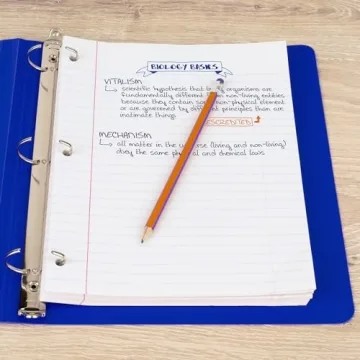 BIOLOGY BASICS
VITALISM
↳ scientific hypothesis that organisms are
fundamentally different non-living entities
because they contain non-physical element
or are governed by different principles than are
inanimate things.
DISCREDITED
MECHANISM
↳ all matter in the universe (living and non-living)
obey the same physical and chemical laws